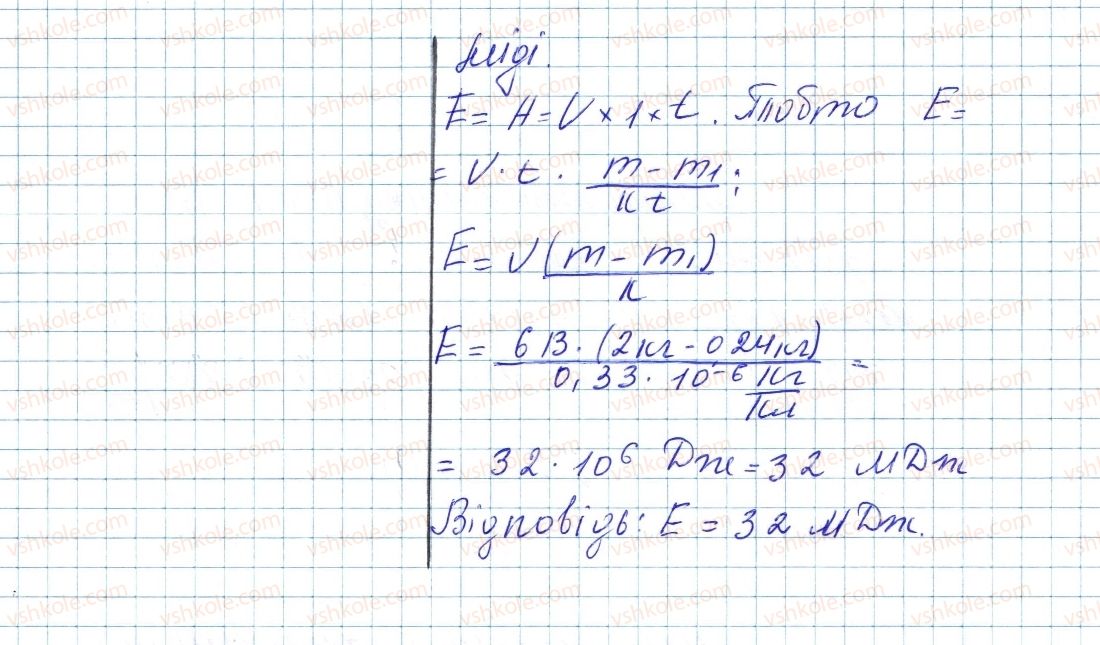 міді.
E = A = U × I × t. Тобто E =
= U · t · \frac{m - m_1}{kt};
E = \frac{U(m - m_1)}{k}
E = \frac{6 В · (2 кг - 0,24 кг)}{0,33 · 10^{-6} \frac{кг}{Кл}} =
= 32 · 10^6 Дж = 32 МДж
Відповідь: E = 32 МДж.
vshkole.com